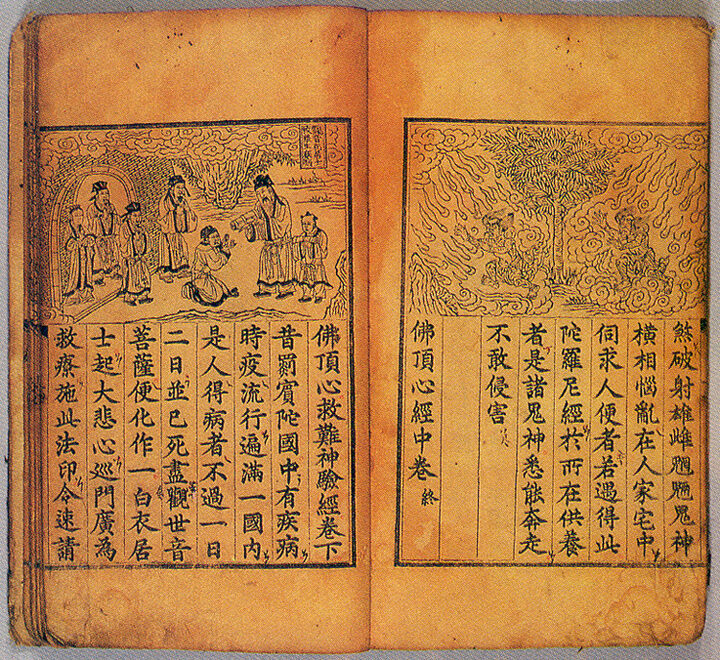 煞破射雄雌魍魎鬼神
横相惱亂在人家宅中
伺求人便者若遇得此
陀羅尼經於所在供養
者是諸鬼神悉能奔走
不敢侵害
佛頂心經中卷 終
佛頂心救難神驗經卷下
昔罽賓陀國中有疾病
時疫流行遍滿一國內
是人得病者不過一日
二日並已死盡觀世音
菩薩便化作一白衣居
士起大悲心巡門廣為
救療施此法印令速請